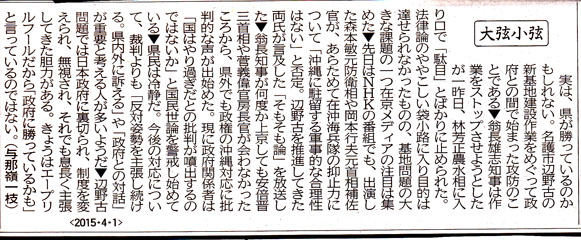 大弦小弦
実は、県が勝っているのか
もしれない。名護市辺野古の
新基地建設作業をめぐって政
府との間で始まった攻防のこ
とである▼翁長雄志知事は作
業をストップさせようとした
が一昨日、林芳正農水相に入
り口で「駄目」とばかりに止められた。
法律論のややこしい袋小路に入り目的は
達せられなかったものの、基地問題の大
きな課題の一つ在京メディアの注目は集
めた▼先日はNHKの番組でも、出演し
た森本敏元防衛相や岡本行夫元首相補佐
官が、あらためて在沖海兵隊の抑止力に
ついて「沖縄に駐留する軍事的な合理性
はない」と否定。辺野古を推進してきた
両氏が言及した「そもそも論」を放送し
た▼翁長知事が何度か上京しても安倍晋
三首相や菅義偉官房長官が会わなかった
ころから、県外でも政権の沖縄対応に批
判的な声が出始めた。現に政府関係者は
「国はやり過ぎとの批判が噴出するの
ではないか」と国民世論を警戒し始めて
いる▼県民は冷静だ。今後の対応につい
て、裁判よりも「反対姿勢を主張し続け
る。県内外に訴える」や「政府との対話」
が重要と考える人が多いようだ▼辺野古
問題では日本政府に裏切られ、制度を変
えられ、無視され、それでも息長く主張
してきた胆力がある。きょうはエープリ
ルフールだから「政府に勝っているかも」
と言っているのではない。(与那嶺一枝)
<2015・4・1>